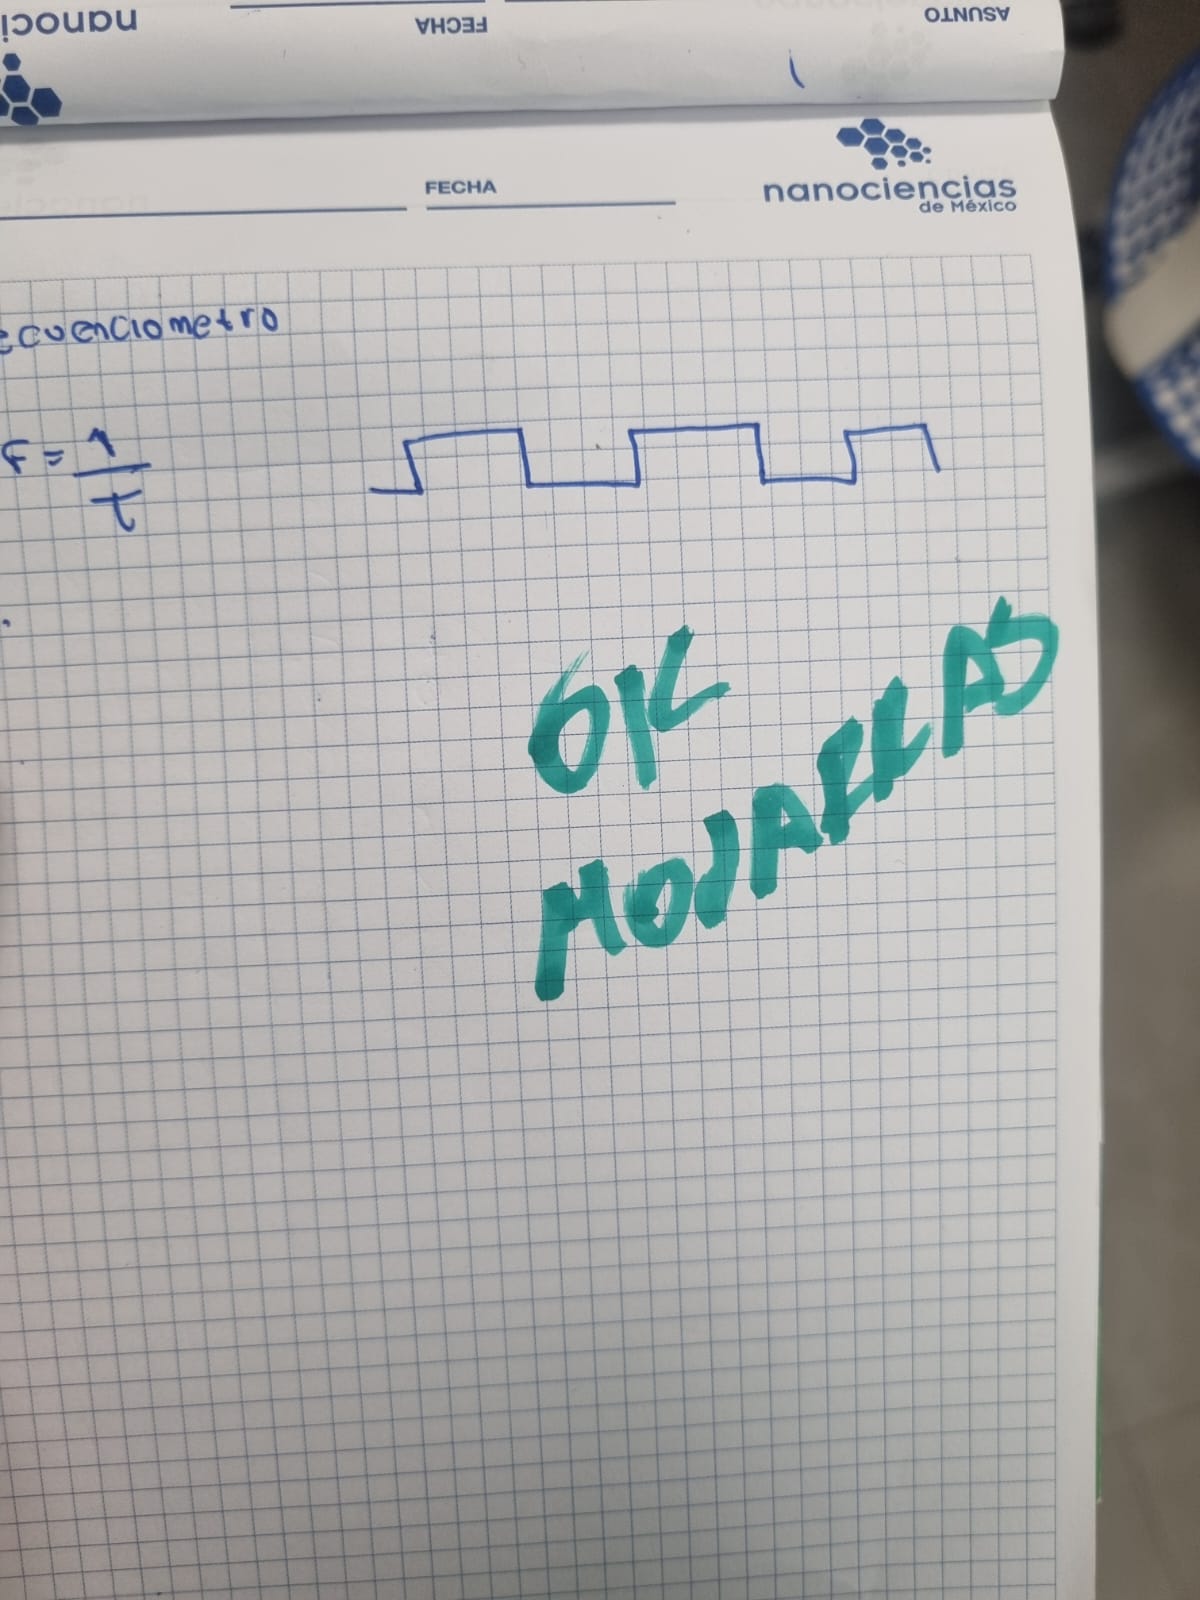 nanoci
FECHA
ASUNTO
FECHA
nanociencias
de México
ecuenciometro
F = 1
T
OK